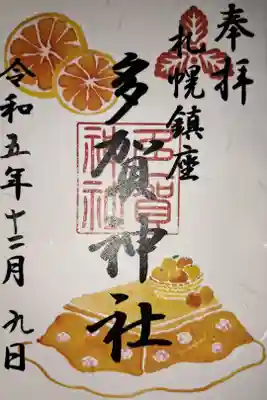 奉拝
札幌鎮座
多賀神社
多賀神社
令和五年十二月九日